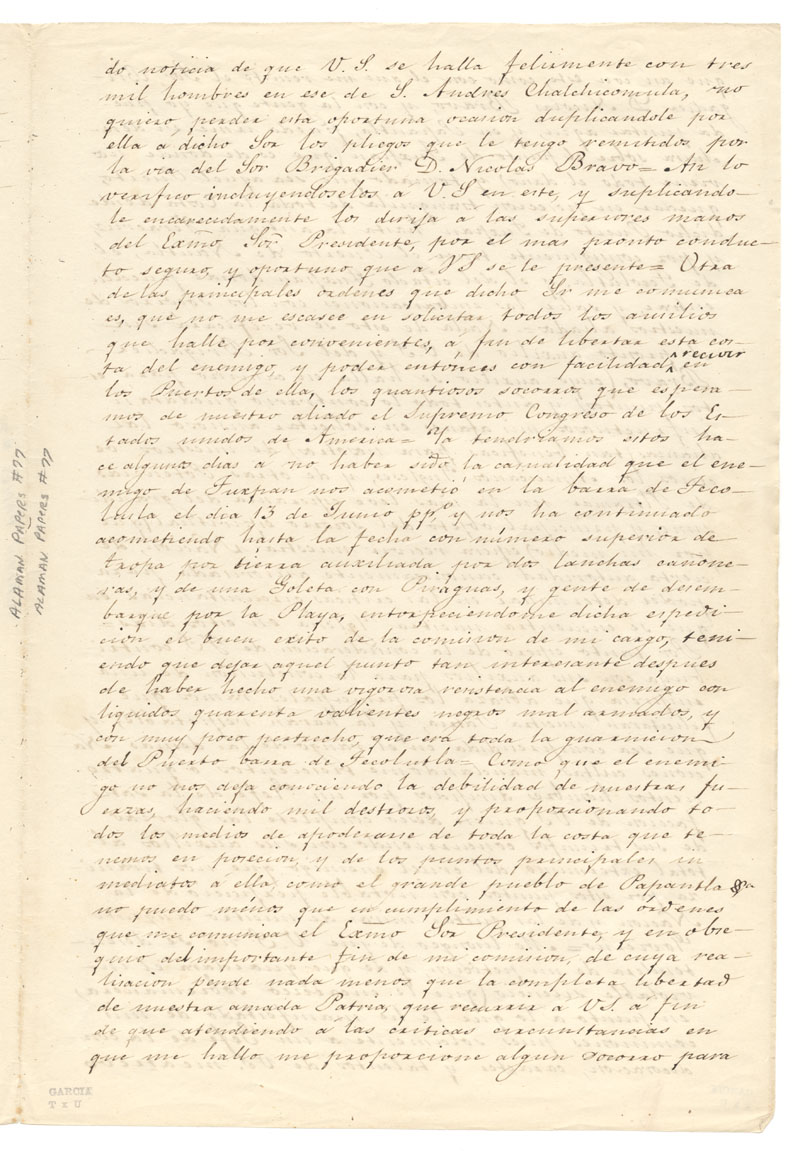 do noticia de que V. S. se halla felizmente con tres
mil hombres en ese de S. Andres Chalchicomula, no
quiero, perder esta oportuna ocasion duplicandole por
ella á dicho Sor los pliegos que le tengo remitidos por
la via del Sor Brigadier D. Nicolas Bravo= An lo
verifico incluyendoselos a V. S en este, y suplicando-
le encarecidamente los dirija a las superiores manos
del Exmo Sor Presidente, por el mas pronto conduc-
to seguro, y oportuno que a VS se le presente= Otra
de las principales ordenes que dicho Sr me comunica
es, que no me escasee en solicitar todos los auxilios
que halle por convenientes, á fin de libertar esta cos-
ta del enemigo, y poder entónces con facilidad, recivir en
los Puertos de ella, los quantiosos socorros que espera-
mos de nuestro aliado el Supremo Congreso de los Es-
tados unidos de America= Ya tendriamos estos ha-
ce algunos dias á no haber sido la casualidad que el ene-
migo de Tuxpan nos acometió en la barra de Teco-
lutla el dia 13 de Junio pp.º y nos ha continuado
acometiendo hasta la fecha con número superior de
tropa por tierra auxiliada por dos lanchas cañone-
ras, y de una Goleta con Piraguas, y gente de desem-
barque por la Playa, entorpeciendome dicha espedi-
cion el buen exito de la comision de mi cargo, teni-
endo que dejar aquel punto tan interesante despues
de haber hecho una vigorosa resistencia al enemigo con
liquidos quarenta valientes negros mal armados, y
con muy poco pertrecho, que era toda la guarnicion
del Puerto barra de Tecolutla= Como que el enemi-
go no nos deja conociendo la debilidad de nuestras fu-
erzas, haciendo mil destrozos, y proporcionando to-
dos los medios de apoderarse de toda la costa que te-
nemos en posecion, y de los puntos principales in
mediatos á ella, como el grande pueblo de Papantla &a
no puedo ménos que en cumplimiento de las órdenes
que me comunica el Exmo Sor Presidente, y en obse-
quio del importante fin de mi comision, de cuya rea-
lizacion pende nada ménos que la completa libertad
de nuestra amada Patria, que recurrir a VS. á fin
de que atendiendo á las criticas circunstancias en
que me hallo me proporcione algun socorro para
ALAMAN PAPERS #77
ALAMAN PAPERS #77
GARCIA
T x U